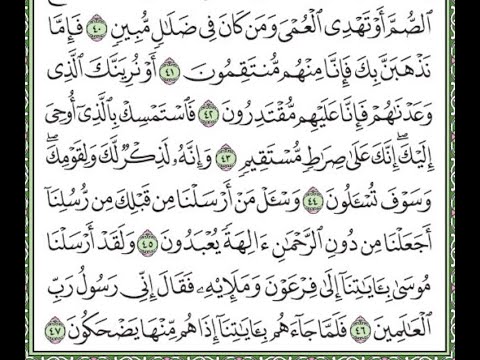 ٱلصُّمَّ أَوْ تَهْدِى ٱلْعُمْىَ وَمَن كَانَ فِى ضَلَـٰلٍ مُّبِينٍ ٤٠ فَإِمَّا
نَذْهَبَنَّ بِكَ فَإِنَّا مِنْهُم مُّنتَقِمُونَ ٤١ أَوْ نُرِيَنَّكَ ٱلَّذِى
وَعَدْنَـٰهُمْ فَإِنَّا عَلَيْهِم مُّقْتَدِرُونَ ٤٢ فَٱسْتَمْسِكْ بِٱلَّذِىٓ أُوحِىَ
إِلَيْكَ ۖ إِنَّكَ عَلَىٰ صِرَٰطٍ مُّسْتَقِيمٍ ٤٣ وَإِنَّهُۥ لَذِكْرٌ لَّكَ وَلِقَوْمِكَ ۖ
وَسَوْفَ تُسْـَٔلُونَ ٤٤ وَسْـَٔلْ مَنْ أَرْسَلْنَا مِن قَبْلِكَ مِن رُّسُلِنَآ
أَجَعَلْنَا مِن دُونِ ٱلرَّحْمَـٰنِ ءَالِهَةً يُعْبَدُونَ ٤٥ وَلَقَدْ أَرْسَلْنَا
مُوسَىٰ بِـَٔايَـٰتِنَآ إِلَىٰ فِرْعَوْنَ وَمَلَإِي۟هِۦ فَقَالَ إِنِّى رَسُولُ رَبِّ
ٱلْعَـٰلَمِينَ ٤٦ فَلَمَّا جَآءَهُم بِـَٔايَـٰتِنَآ إِذَا هُم مِّنْهَا يَضْحَكُونَ ٤٧